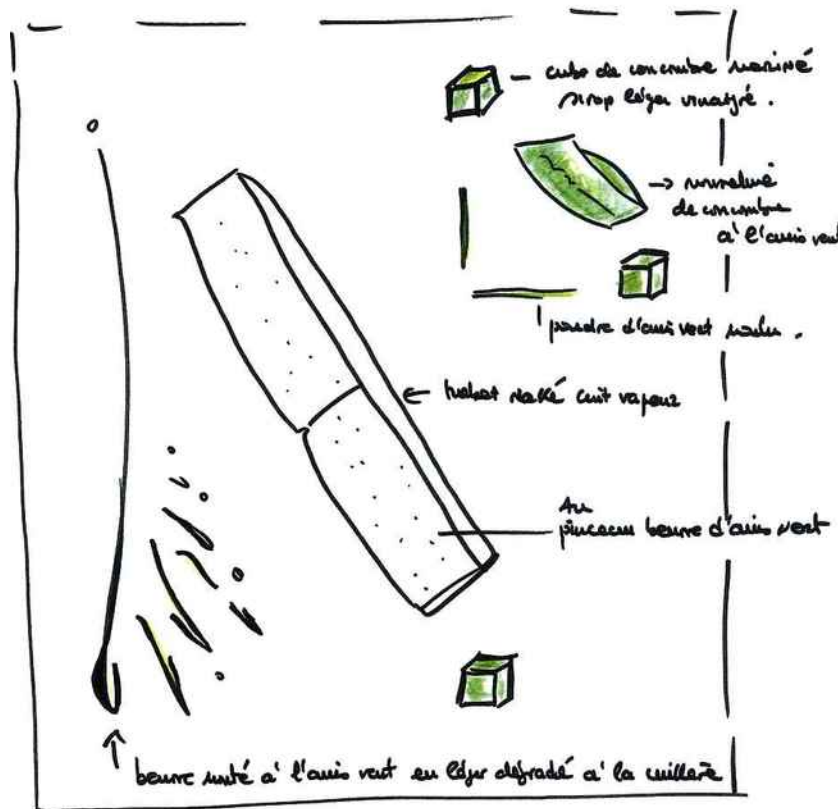 cube de concombre mariné
sirop léger vinaigré.
→ marmelade
de concombre
à l'anis vert
poudre d'anis vert moulu.
← turbot nacré cuit vapeur
Au
pinceau beurre d'anis vert
beurre monté à l'anis vert en léger dégradé à la cuillère